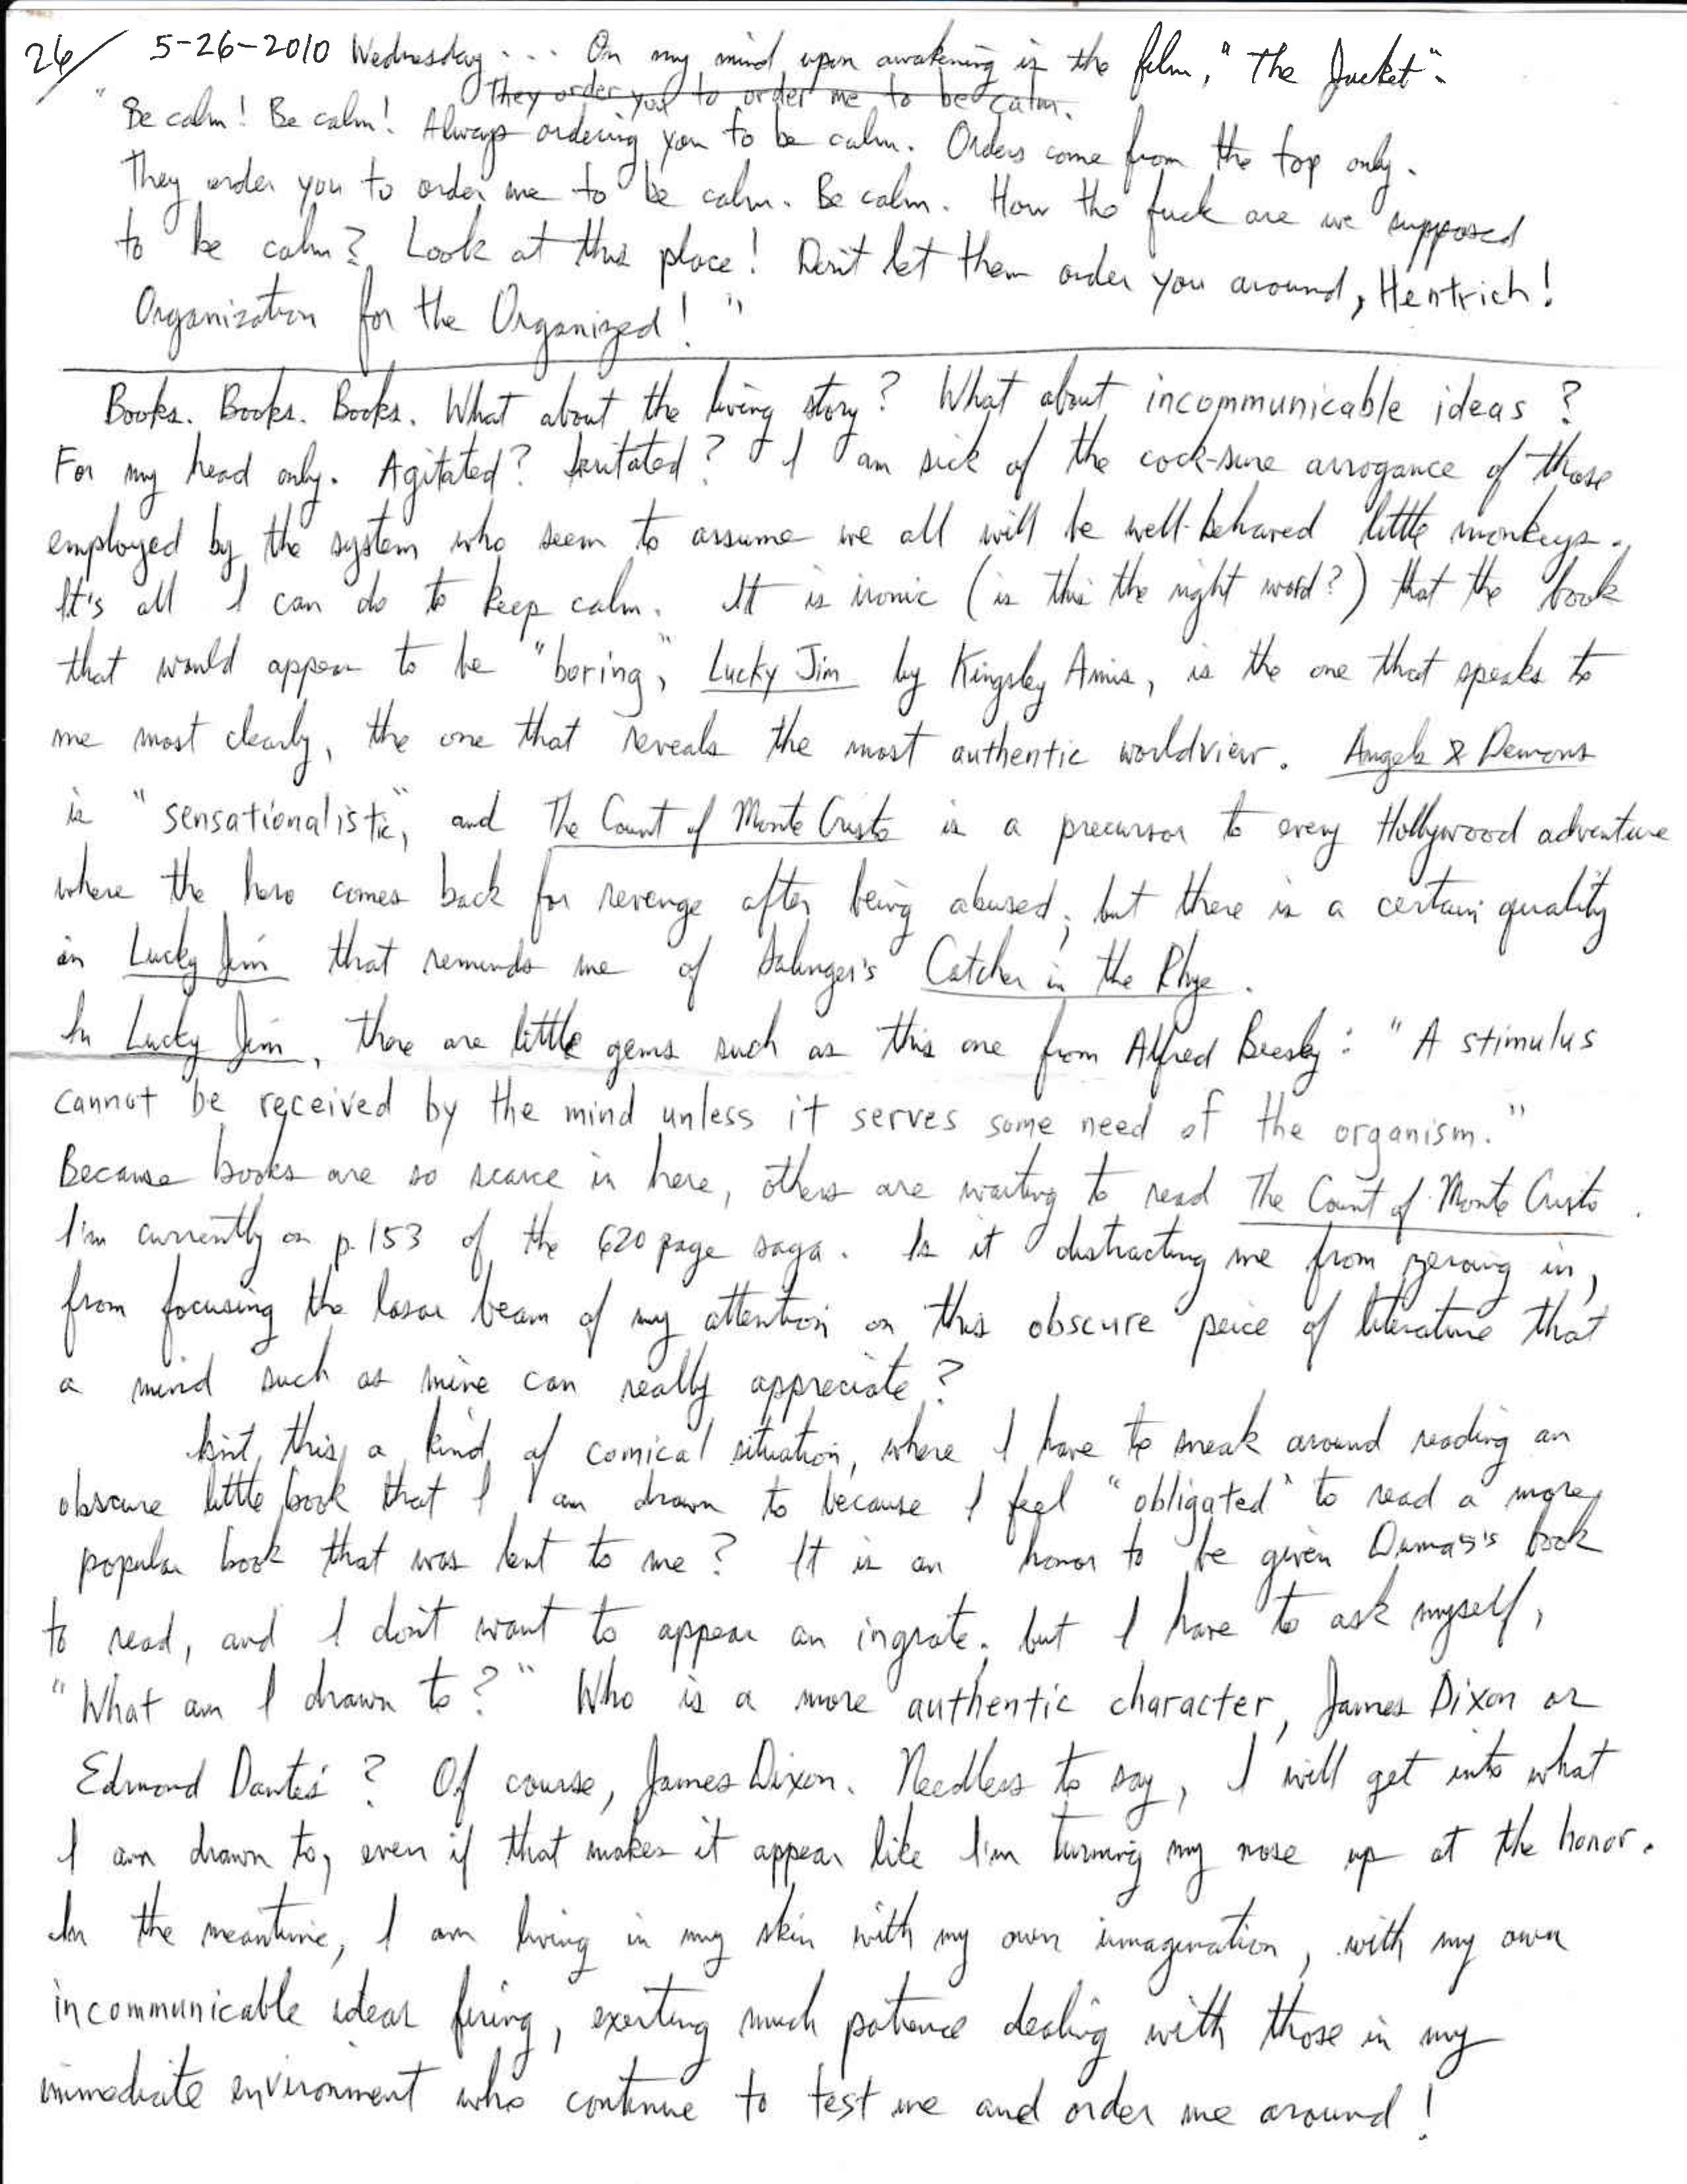 26/ 5-26-2010 Wednesday... On my mind upon awakening is the film, "The Jacket":
They order you to order me to be calm.
"Be calm! Be calm! Always ordering you to be calm. Orders come from the top only.
They order you to order me to be calm. Be calm. How the fuck are we supposed
to be calm? Look at this place! Don't let them order you around, Hentrich!
Organization for the Organized!"
Books. Books. Books. What about the living story? What about incommunicable ideas?
For my head only. Agitated? Irritated? I am sick of the cock-sure arrogance of those
employed by the system who seem to assume we all will be well-behaved little monkeys.
It's all I can do to keep calm. It is ironic (is this the right word?) that the book
that would appear to be "boring," Lucky Jim by Kingsley Amis, is the one that speaks to
me most clearly, the one that reveals the most authentic worldview. Angels & Demons
is "sensationalistic," and The Count of Monte Cristo is a precursor to every Hollywood adventure
where the hero comes back for revenge after being abused; but there is a certain quality
in Lucky Jim that reminds me of Salinger's Catcher in the Rhye.
In Lucky Jim, there are little gems such as this one from Alfred Beesly: "A stimulus
cannot be received by the mind unless it serves some need of the organism."
Because books are so scarce in here, others are waiting to read The Count of Monte Cristo.
I'm currently on p. 153 of the 620 page saga. Is it distracting me from zeroing in,
from focusing the lasar beam of my attention on this obscure peice of literature that
a mind such as mine can really appreciate?
Isn't this a kind of comical situation, where I have to sneak around reading an
obscure little book that I am drawn to because I feel "obligated" to read a more
popular book that was lent to me? It is an honor to be given Dumas's book
to read, and I don't want to appear an ingrate. but I have to ask myself,
"What am I drawn to?" Who is a more authentic character, James Dixon or
Edmond Dantes? Of course, James Dixon. Needless to say, I will get into what
I am drawn to, even if that makes it appear like I'm turning my nose up at the honor.
In the meantime, I am living in my skin with my own imagination, with my own
incommunicable ideas firing, exerting much patience dealing with those in my
immediate environment who continue to test me and order me around!